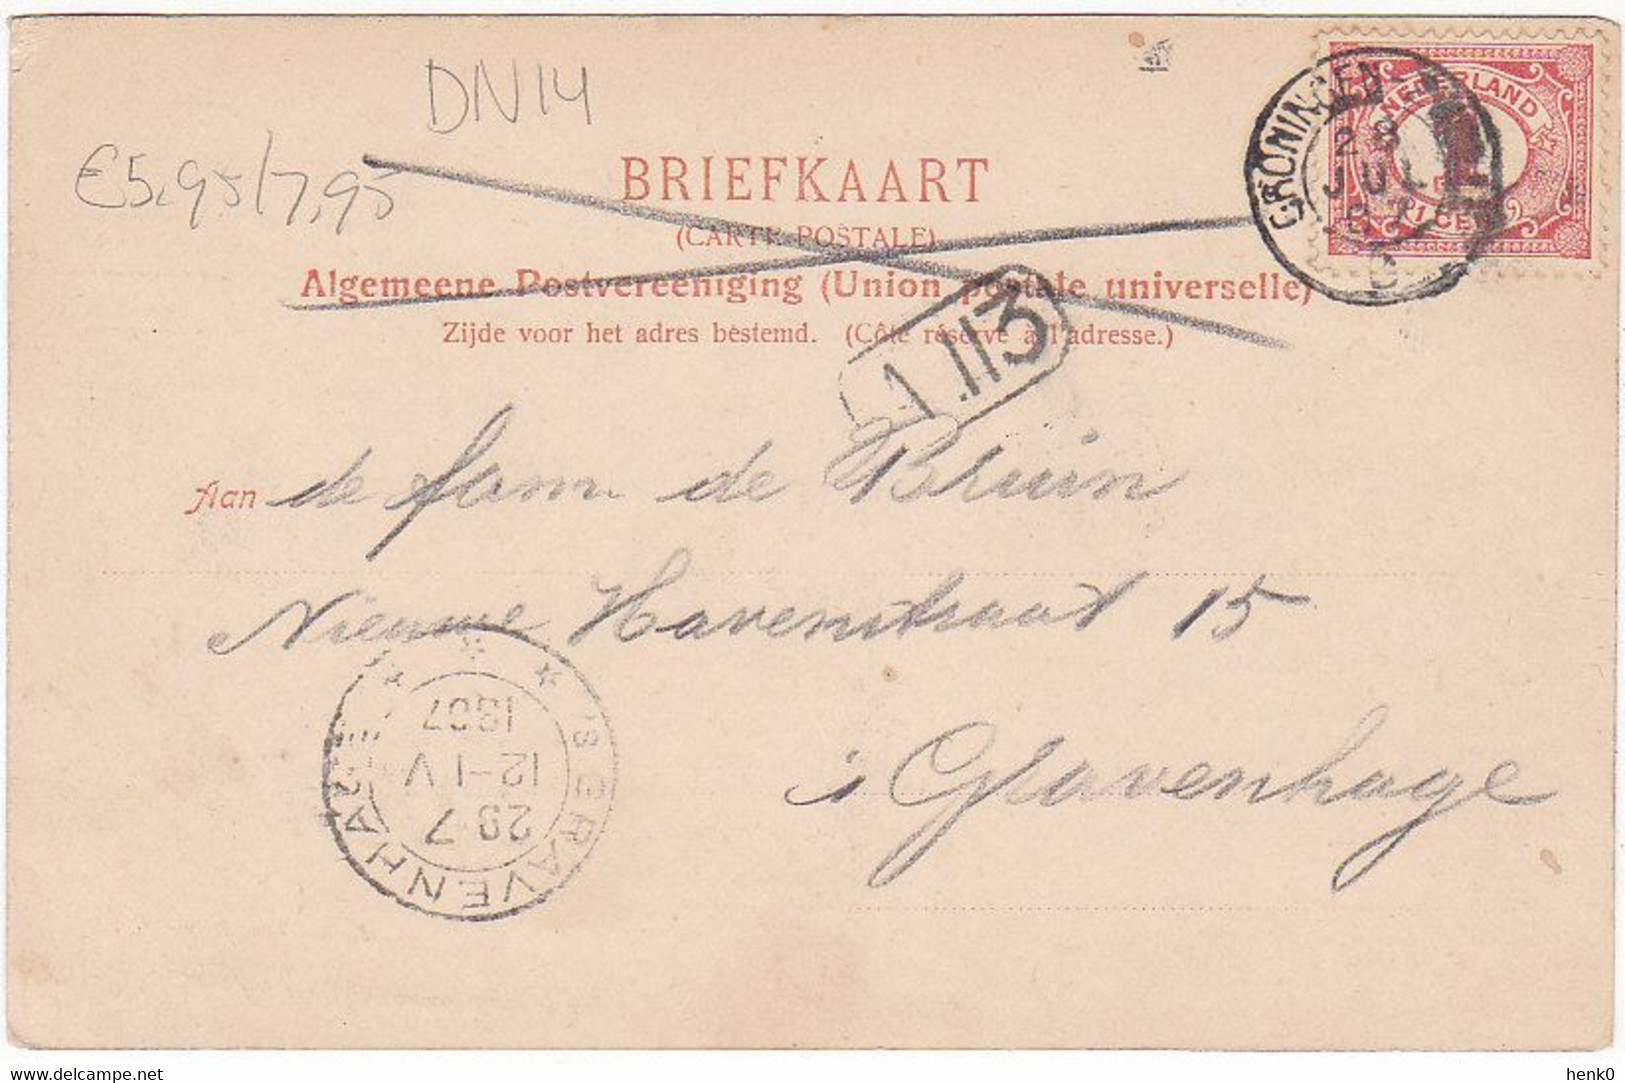 DN14
€5,95/7,95
BRIEFKAART
(CARTE POSTALE)
Algemeene Postvereeniging (Union postale universelle)
Zijde voor het adres bestemd. (Côté réservé à l'adresse.)
NEDERLAND
1 CENT
GRONINGEN
28
JUL
07
A.113
Aan de fam. de Bruin
Nieuwe Havenstraat 15
's Gravenhage
'S GRAVENHAGE
29 7
12-1 V
1907
www.delcampe.net
henk0